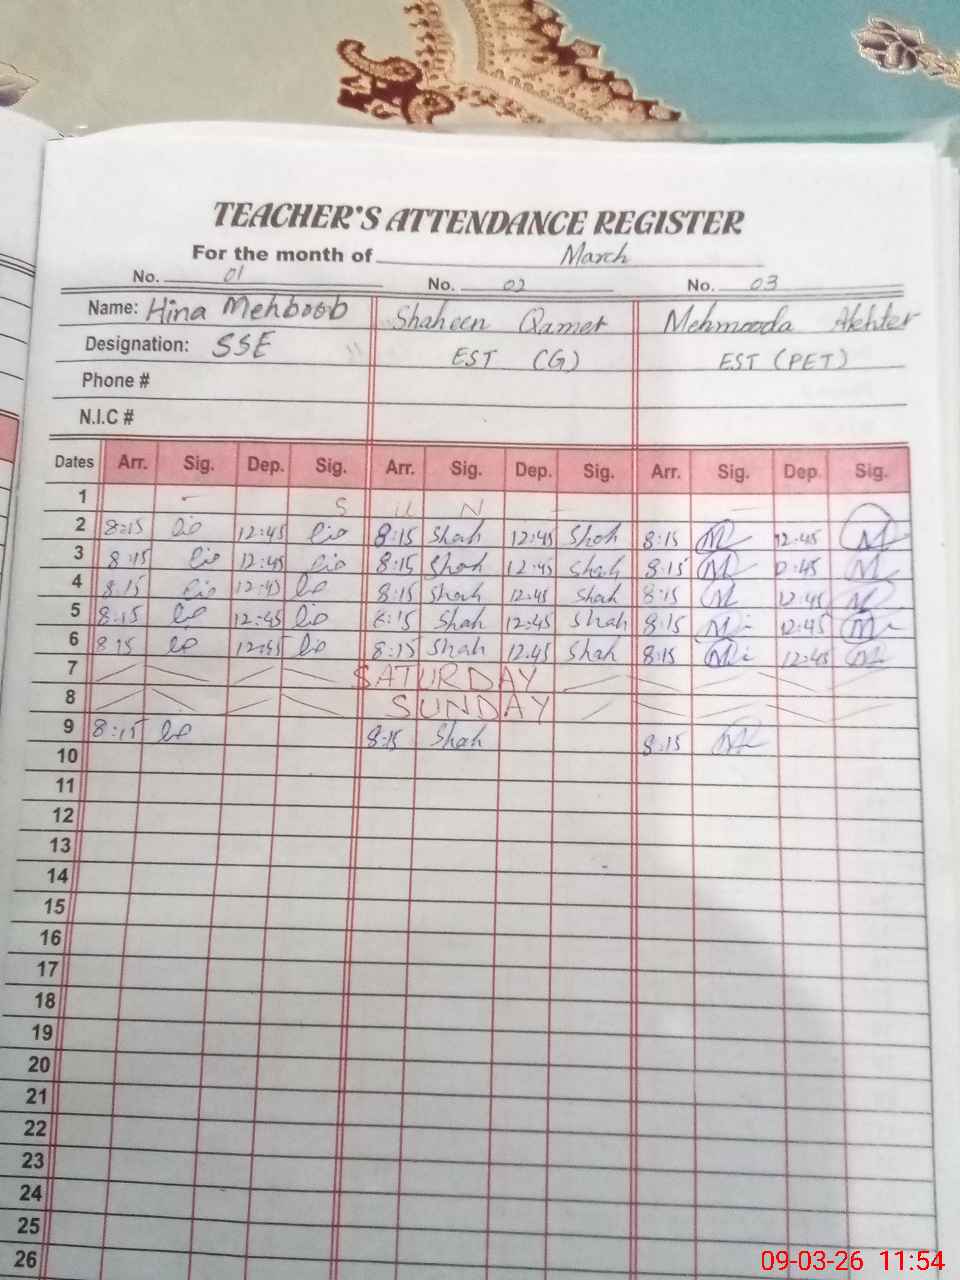 TEACHER'S ATTENDANCE REGISTER
For the month of March
No. 01 No. 02 No. 03
Name: Hina Mehboob Shaheen Qamer Mehmooda Akhter
Designation: SSE EST (G) EST (PET)
Phone #
N.I.C #
Dates Arr. Sig. Dep. Sig. Arr. Sig. Dep. Sig. Arr. Sig. Dep. Sig.
1 S U N
2 8:15 12:45 8:15 Shah 12:45 Shah 8:15 M 12:45 M
3 8:15 12:45 8:15 Shah 12:45 Shah 8:15 M 12:45 M
4 8:15 12:45 8:15 Shah 12:45 Shah 8:15 M 12:45 M
5 8:15 12:45 8:15 Shah 12:45 Shah 8:15 M 12:45 M
6 8:15 12:45 8:15 Shah 12:45 Shah 8:15 M 12:45 M
7 SATURDAY
8 SUNDAY
9 8:15 8:15 Shah 8:15 M
10
11
12
13
14
15
16
17
18
19
20
21
22
23
24
25
26
09-03-26 11:54